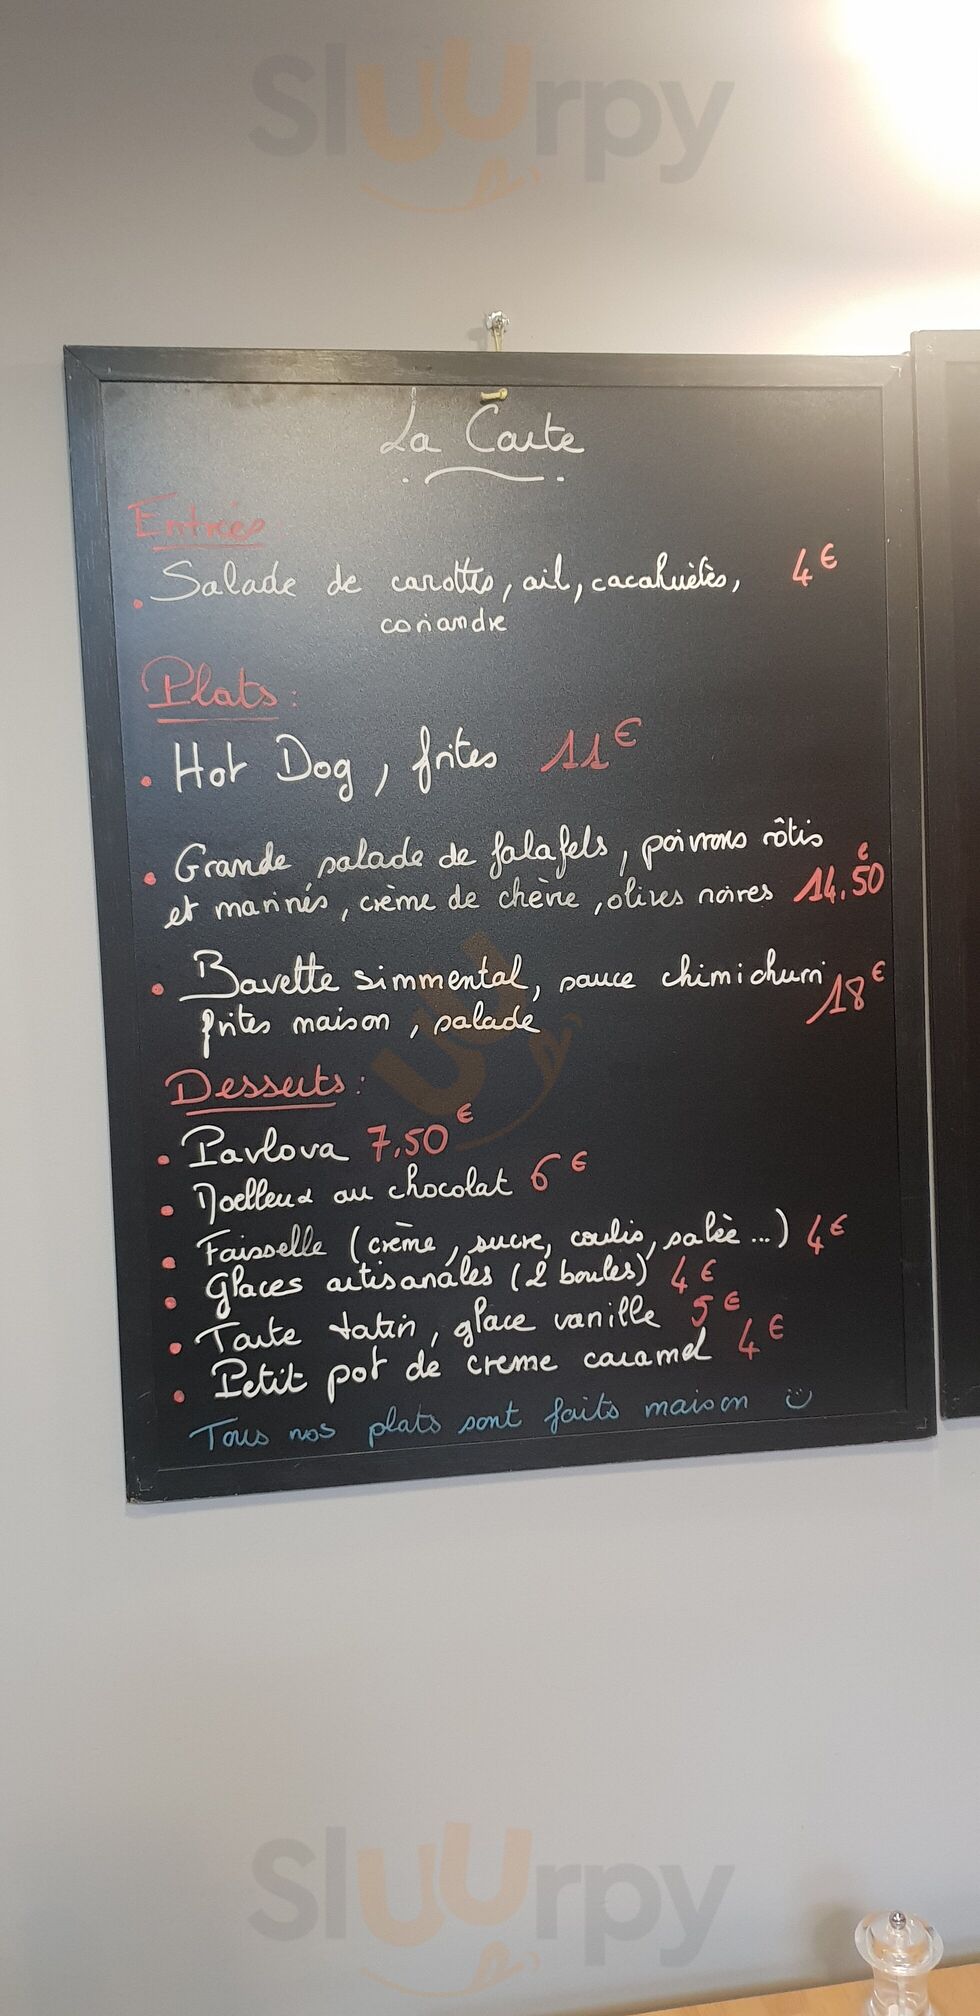 Sluurpy
La Carte
Entrées
Salade de carottes, ail, cacahuètès, 4€
coriandre
Plats :
Hot Dog, frites 11€
Grande salade de falafels, poivrons rôtis
et marinés, crème de chèvre, olives noires 14,50€
Bavette simmental, sauce chimichurri
frites maison, salade 18€
Desserts :
Pavlova 7,50€
Moelleux au chocolat 6€
Faisselle (crème, sucre, coulis, salée...) 4€
Glaces artisanales (2 boules) 4€
Tarte tatin, glace vanille 5€
Petit pot de creme caramel 4€
Tous nos plats sont faits maison
Sluurpy